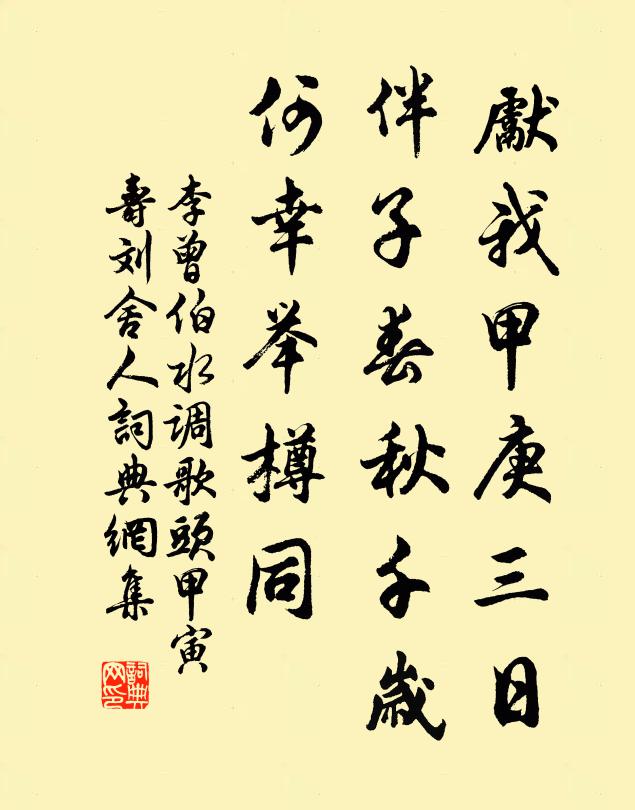 獻我甲庚三日
伴子春秋千歳
何幸举樽同
李曾伯水调歌頭甲寅
壽刘舍人詞典網集
詞典网印